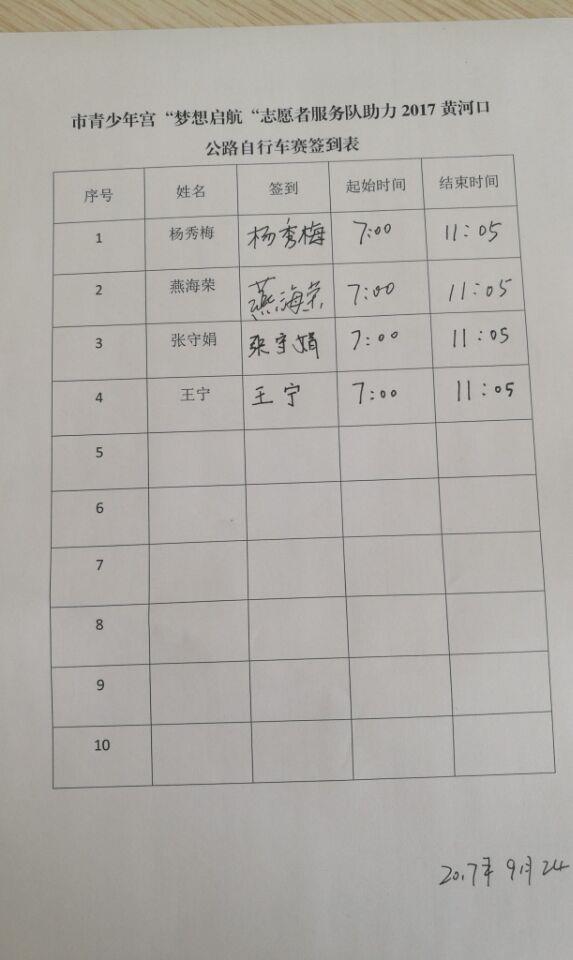 市青少年宫“梦想启航“志愿者服务队助力 2017 黄河口
公路自行车赛签到表
序号 姓名 签到 起始时间 结束时间
1 杨秀梅 杨秀梅 7:00 11:05
2 燕海荣 燕海荣 7:00 11:05
3 张守娟 张守娟 7:00 11:05
4 王宁 王宁 7:00 11:05
5
6
7
8
9
10
2017年9月24